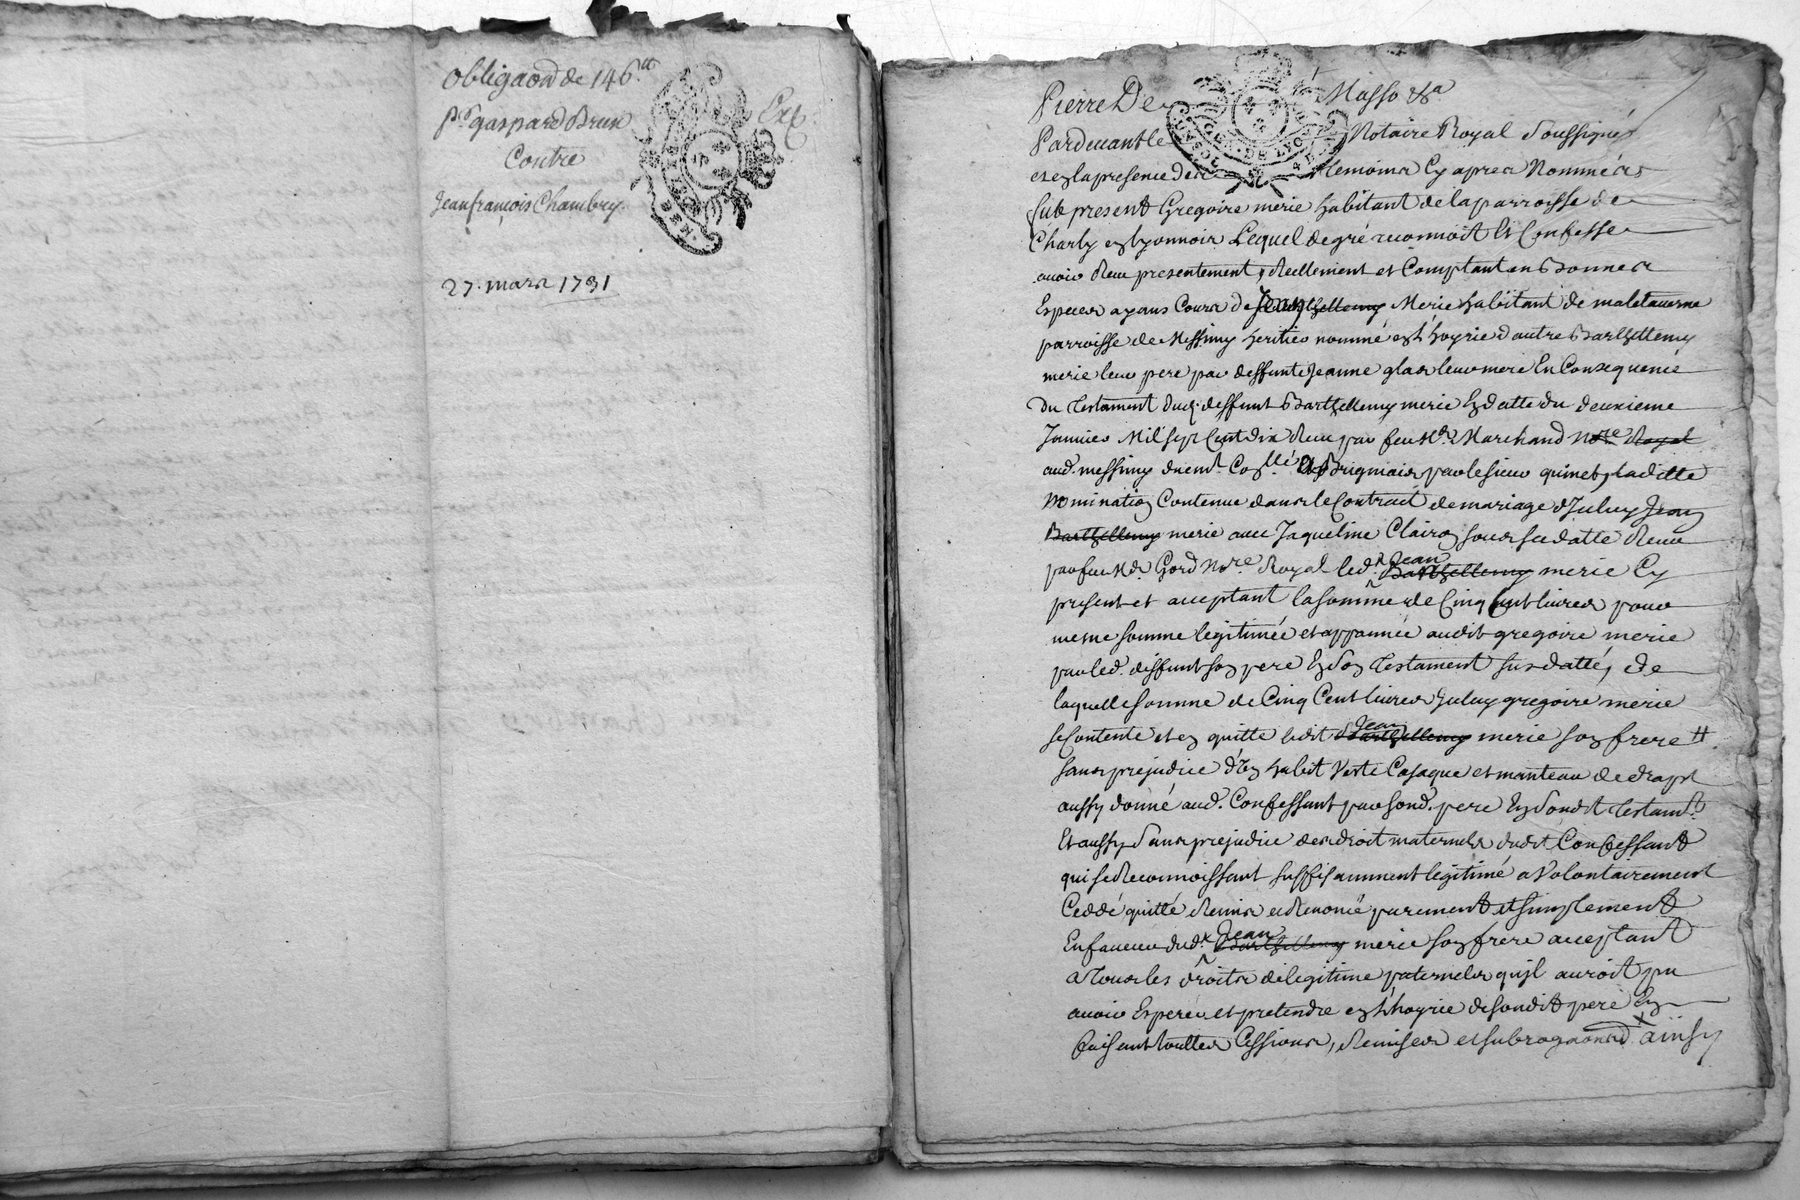 obligaõn de 146ᵗᵗ
pʳ gaspard Brun
Contre
Jean françois Chambry
27. mars 1731
Exp.
Pierre De Masso &ª
Pardevant le Notaire Royal Soussigné
et en la presence des temoins cy apres Nommés
fut present Gregoire merie habitant de la parroisse de
Charly en lyonnois Lequel de gré reconnoit Et Confesse
avoir Receu presentement, Reellement et Comptant en Bonnes
Especes ayans Cours de Jean Barthellemy Merie habitant de maletaverne
parroisse de Messimy heritier nommé en l'hoyrie d'autre Barthellemy
merie leur pere par deffunte Jeanne glas leur mere En Consequence
Du Testament dud. deffunt Barthellemy merie En datte du deuxieme
Janvier Mil sept Cent dix Receu par feu Mᵉ Marchand Noʳᵉ Royal
aud. messimy duemᵗ Conˡˡé A Brignais par le sieur quinet, la ditte
Nomination Contenue dans le Contract de mariage d'Iceluy Jean
Barthellemy merie avec Jaqueline Clairon sous sa datte Receu
par feu Mᵉ Gord Noʳᵉ Royal led. Jean Barthellemy merie Cy
present et acceptant la somme de Cinq Cent livres pour
mesme somme legitimée et appannée audit gregoire merie
par led. deffunt son pere En son Testament sus datté, de
laquelle somme de Cinq Cent livres Iceluy gregoire merie
se Contente et en quitte ledit Jean Barthellemy merie son frere #
sans prejudice d'un habit Veste Casaque et manteau de drapt
aussy donné aud. Confessant par sond. pere En Sondit Testamᵗ
Et aussy Sans prejudice des droit maternels dudit Confessant
qui se Reconnoissant suffisamment legitimé a Volontairement
Ceddé quitté Remis et Renoncé purement et simplement
En faveur dud. Jean Barthellemy merie son frere acceptant
a tous les droits de legitime paternels qu'jl auroit pu
avoir Esperer et pretendre en l'hoyrie de sondit pere En
faisant touttes Cessions, Remises et subrogaõns x ainsy